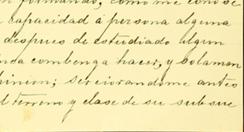 formando, como me conoce
capacidad á persona alguna
despues de estudiado algun
combenga hacer, y solamen
cerciorandome antes
terreno y clase de su subsue